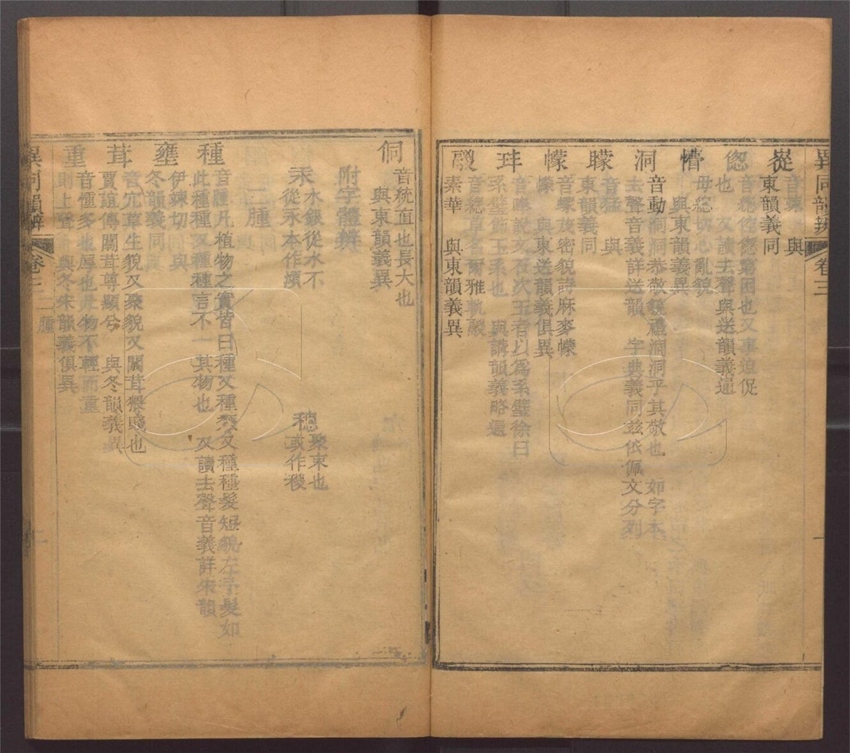 異同韻辨 卷三 一
嵸
音 與
東韻義同
偬
音 偬 窮困也又事迫促
也 又讀去聲與送韻義通
懵
母 心亂貌
與東韻義異
洞
音動洞洞恭敬貌禮洞洞乎其敬也 如字本
去聲音義詳送韻 字典義同茲依佩文分列
矇
音 與
東韻義同
幪
音 茂密貌詩麻麥幪
幪 與東送韻義俱異
玤
音 說文石次玉者以爲系璧徐曰
系璧飾玉系也 與講韻義略通
鬷
音總 名爾雅鬷
素華 與東韻義異
侗
音統直也長大也
與東韻義異
附字體辨
汞
水銀從水不
從永本作澒
總
聚束也
或作
二腫
種
音腫凡植物之實皆曰種又種類又種種髮短貌左字髮如
此種種又種種言不一其物也 又讀去聲音義詳宋韻
壅
伊 切 與
冬韻義同
茸
音冗草生貌又聚貌又闒茸 也
賈誼傳闒茸尊顯兮 與冬韻義異
重
音 多也厚也 物不輕而重
則上聲 與冬宋韻義俱異
異同韻辨 卷三 二腫 二